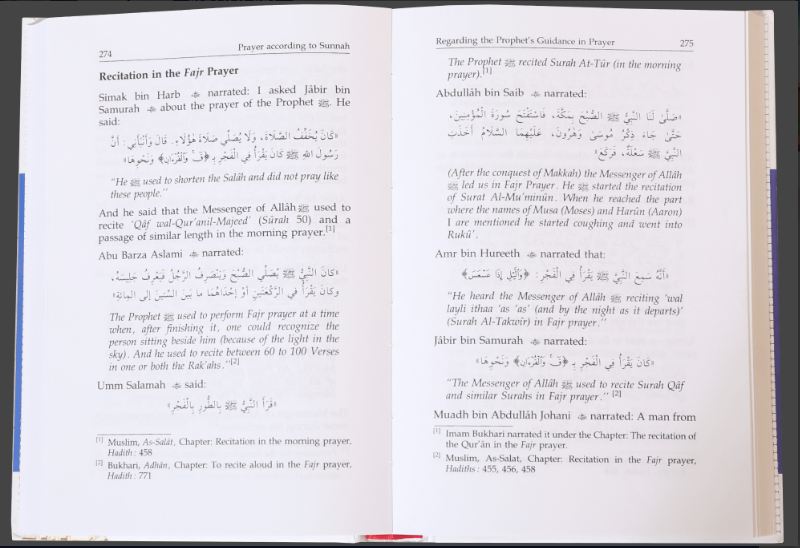 274 Prayer according to Sunnah
Recitation in the Fajr Prayer
Simak bin Harb narrated: I asked Jâbir bin
Samurah about the prayer of the Prophet ﷺ. He
said:
«كَانَ يُخَفِّفُ الصَّلَاةَ، وَلَا يُصَلِّي صَلَاةَ هَؤُلَاءِ. قَالَ وَأَنْبَأَنِي: أَنَّ
رَسُولَ اللهِ ﷺ كَانَ يَقْرَأُ فِي الْفَجْرِ بِـ﴿قٓ وَٱلْقُرْءَانِ﴾ وَنَحْوِهَا»
"He ﷺ used to shorten the Salâh and did not pray like
these people."
And he said that the Messenger of Allâh ﷺ used to
recite 'Qâf wal-Qur'anil-Majeed' (Sûrah 50) and a
passage of similar length in the morning prayer.[1]
Abu Barza Aslami narrated:
«كَانَ النَّبِيُّ ﷺ يُصَلِّي الصُّبْحَ وَيَنْصَرِفُ الرَّجُلُ فَيَعْرِفُ جَلِيسَهُ،
وكَانَ يَقْرَأُ في الرَّكْعَتَيْنِ أَوْ إِحْدَاهُمَا مَا بَينَ السِّتِّينَ إِلَى المِائَةِ»
The Prophet ﷺ used to perform Fajr prayer at a time
when, after finishing it, one could recognize the
person sitting beside him (because of the light in the
sky). And he used to recite between 60 to 100 Verses
in one or both the Rak'ahs."[2]
Umm Salamah said:
«قَرَأَ النَّبِيُّ ﷺ بِالطُّورِ بِالْفَجْرِ»
[1] Muslim, As-Salât, Chapter: Recitation in the morning prayer,
Hadith: 458
[2] Bukhari, Adhân, Chapter: To recite aloud in the Fajr prayer,
Hadith: 771
Regarding the Prophet's Guidance in Prayer 275
The Prophet ﷺ recited Surah At-Tûr (in the morning
prayer).[1]
Abdullâh bin Saib narrated:
«صَلَّى لَنَا النَّبِيُّ ﷺ الصُّبْحَ بِمَكَّةَ، فَاسْتَفْتَحَ سُورَةَ الْمُؤْمِنِينَ،
حَتَّى جَاءَ ذِكْرُ مُوسَى وَهَرُونَ، عَلَيْهِمَا السَّلَامُ أَخَذَتِ
النَّبِيَّ ﷺ سَعْلَةٌ، فَرَكَعَ»
(After the conquest of Makkah) the Messenger of Allâh
ﷺ led us in Fajr Prayer. He ﷺ started the recitation
of Surat Al-Mu'minûn. When he reached the part
where the names of Musa (Moses) and Harûn (Aaron)
I are mentioned he started coughing and went into
Rukû'.
Amr bin Hureeth narrated that:
«أَنَّهُ سَمِعَ النَّبِيَّ ﷺ يَقْرَأُ فِي الْفَجْرِ: ﴿وَٱلَّيْلِ إِذَا عَسْعَسَ﴾»
"He heard the Messenger of Allâh ﷺ reciting 'wal
layli ithaa 'as 'as' (and by the night as it departs)'
(Surah Al-Takwîr) in Fajr prayer."
Jâbir bin Samurah narrated:
«كَانَ يَقْرَأُ فِي الْفَجْرِ بِـ ﴿قٓ وَٱلْقُرْءَانِ﴾ وَنَحْوِهَا»
"The Messenger of Allâh ﷺ used to recite Surah Qâf
and similar Surahs in Fajr prayer." [2]
Muadh bin Abdullâh Johani narrated: A man from
[1] Imam Bukhari narrated it under the Chapter: The recitation of
the Qur'ân in the Fajr prayer.
[2] Muslim, As-Salat, Chapter: Recitation in the Fajr prayer,
Hadiths: 455, 456, 458